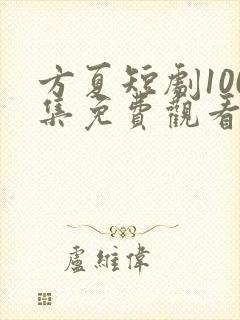 方夏短劇100
集免費觀看
盧維偉